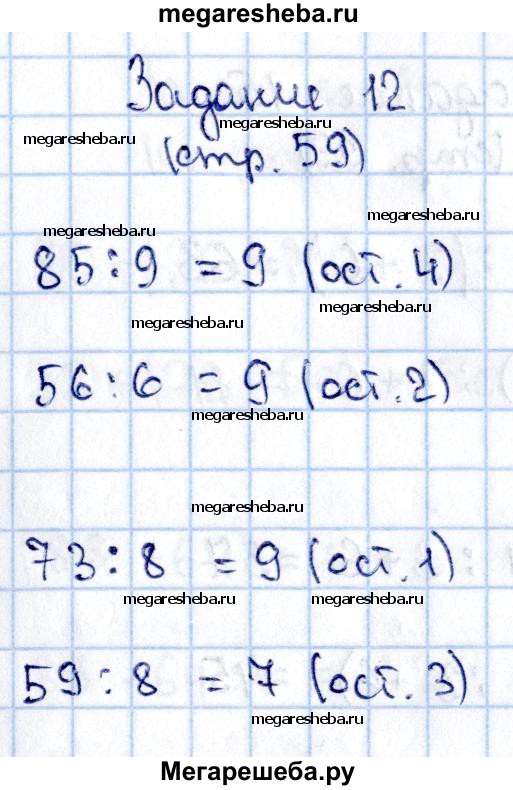 megaresheba.ru
Задание 12
megaresheba.ru
megaresheba.ru
(стр. 59)
megaresheba.ru
megaresheba.ru
85:9 = 9 (ост. 4)
megaresheba.ru
megaresheba.ru
56:6 = 9 (ост. 2)
megaresheba.ru
megaresheba.ru
73:8 = 9 (ост. 1)
megaresheba.ru megaresheba.ru
59:8 = 7 (ост. 3)
megaresheba.ru
Мегарешеба.ру